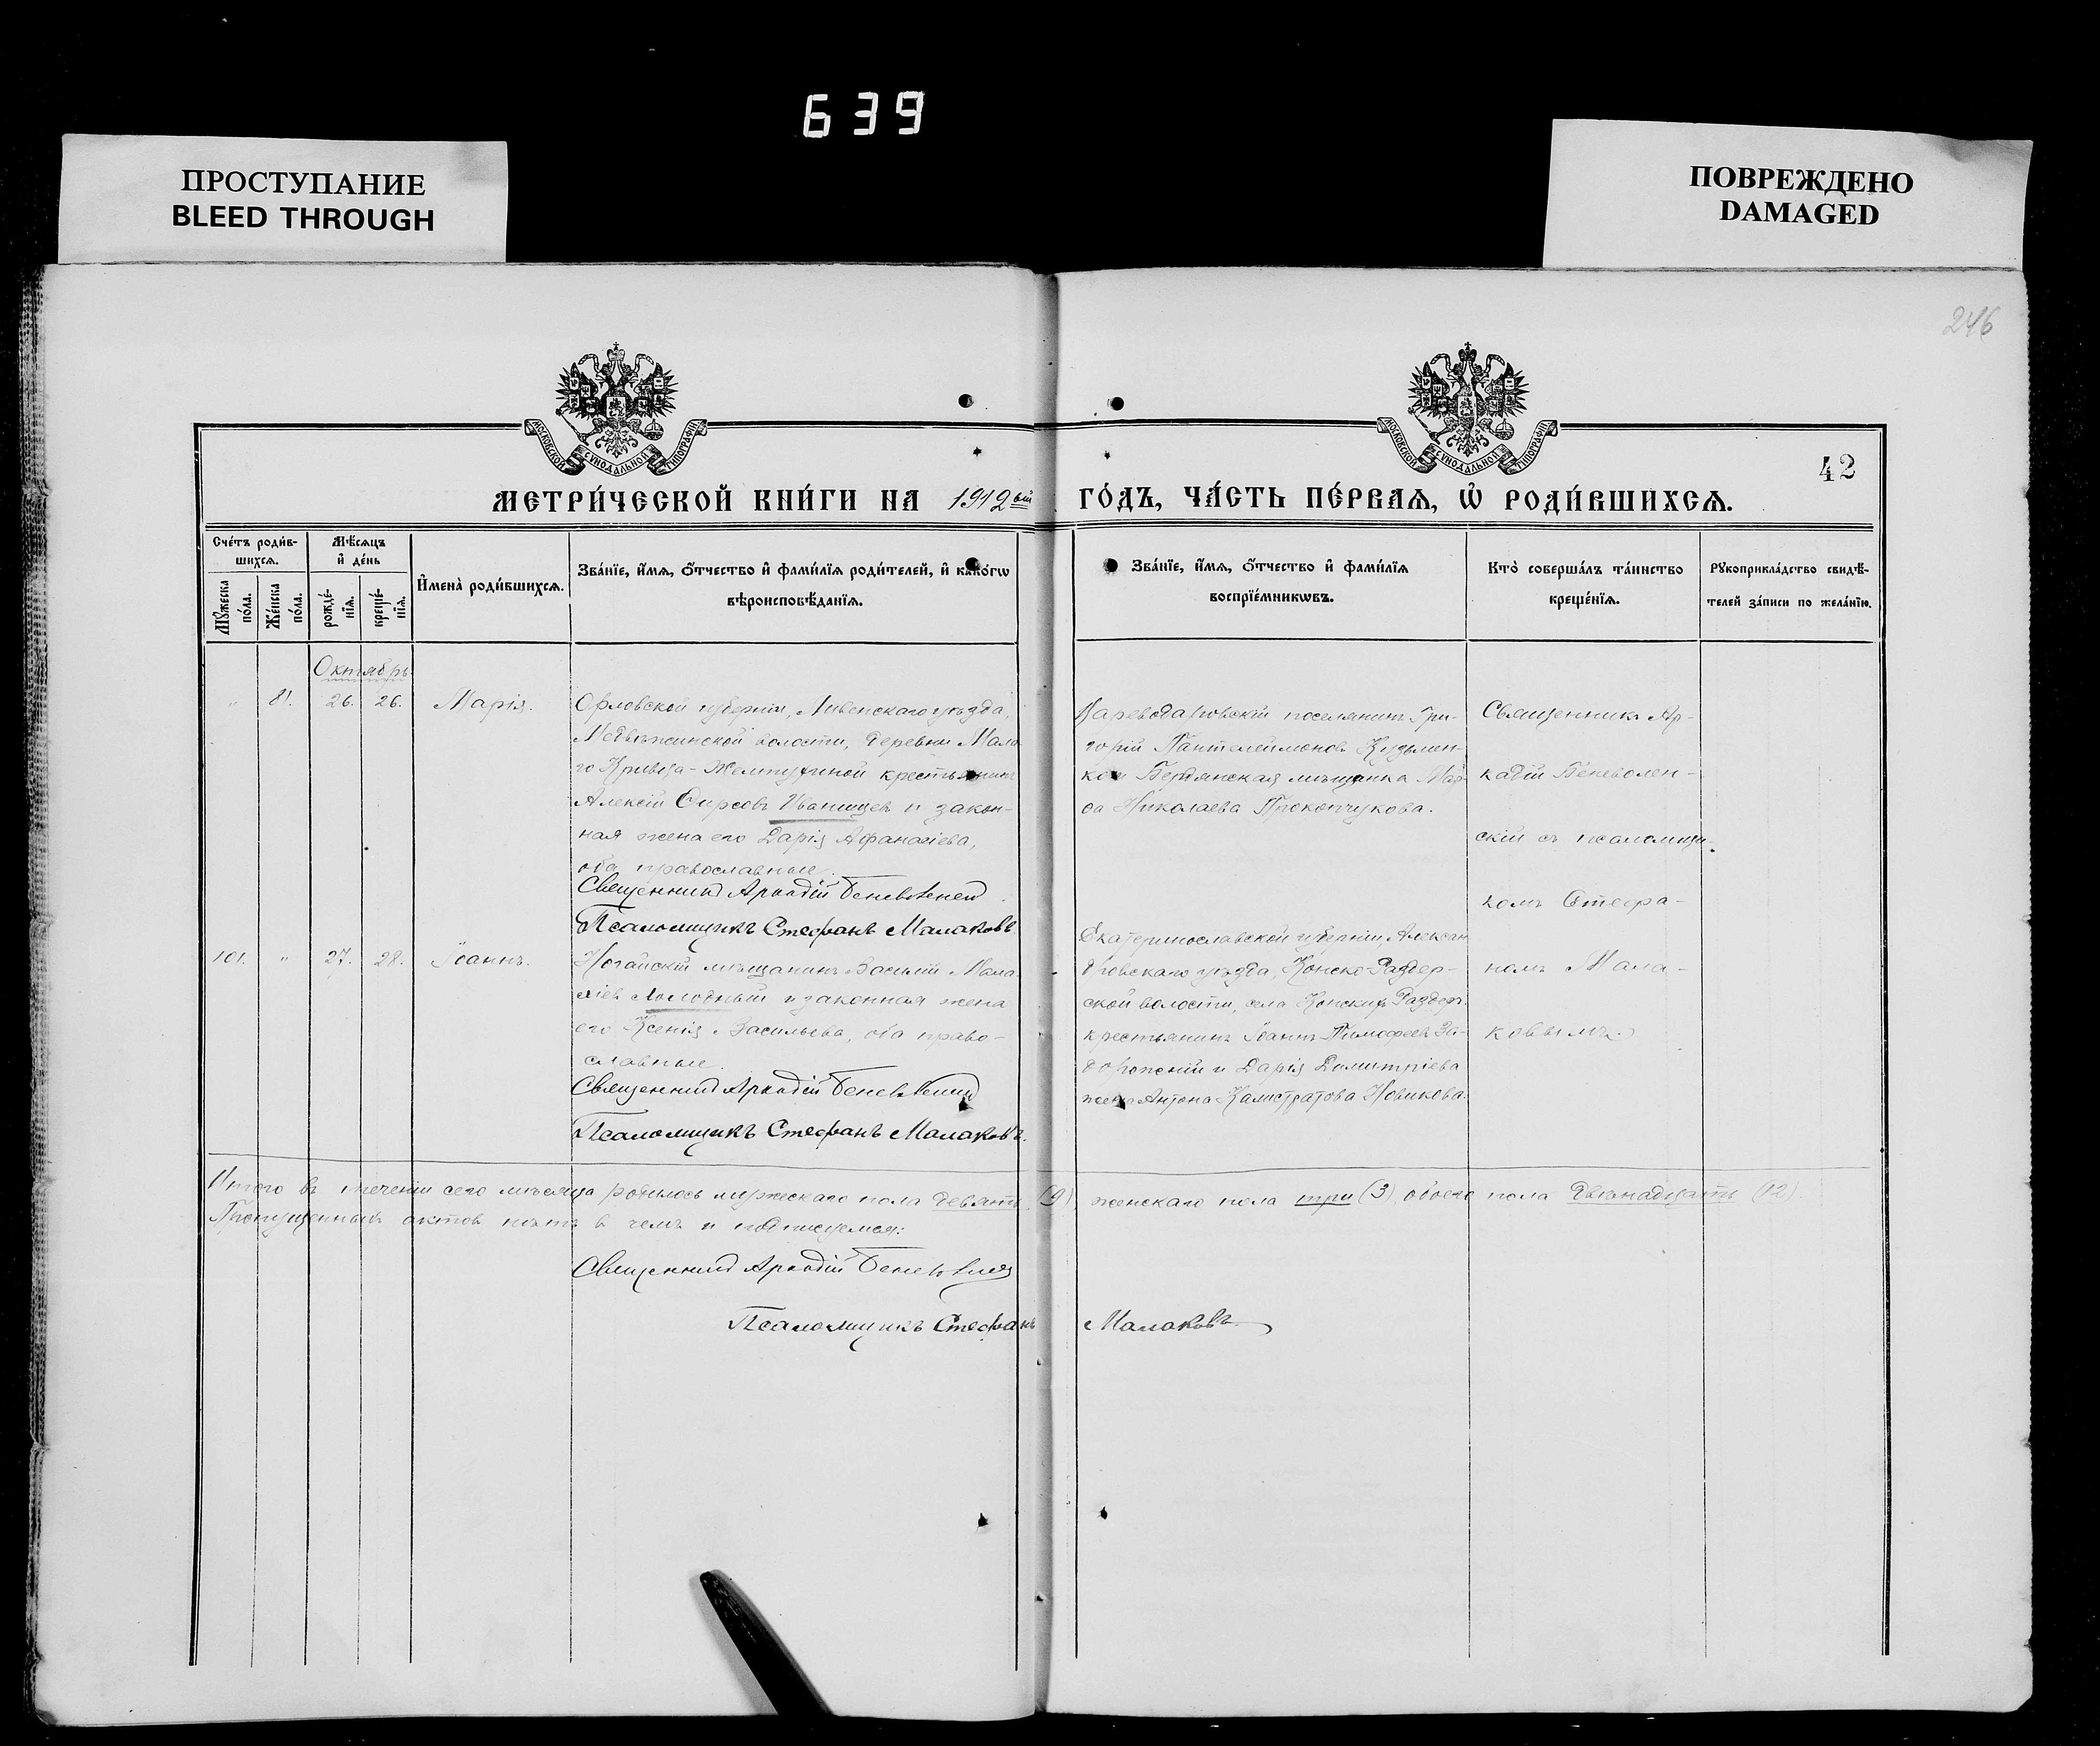 639
ПРОСТУПАНИЕ
BLEED THROUGH
ПОВРЕЖДЕНО
DAMAGED
246
МОСКОВСКОЙ СУНОДАЛЬНОЙ ТИПОГРАФІИ
МОСКОВСКОЙ СУНОДАЛЬНОЙ ТИПОГРАФІИ
42
МЕТРИ́ЧЕСКОЙ КНИ́ГИ НА 1912ый ГО́ДЪ, ЧА́СТЬ ПЕ́РВАѦ, Ѡ҆ РОДИ́ВШИХСѦ.
Сче́тъ роди́в-
шихсѧ.
Мꙋ́жеска по́ла.
Же́нска по́ла.
Мѣ́сѧцъ
и҆ де́нь
рожде́-
нїѧ.
креще́-
нїѧ.
И҆мена̀ роди́вшихсѧ.
Зва́нїе, и҆́мѧ, ѻ҆́тчество и҆ фами́лїѧ роди́телей, и҆ како́гѡ
вѣроисповѣ́данїѧ.
Зва́нїе, и҆́мѧ, ѻ҆́тчество и҆ фами́лїѧ
воспрїе́мникѡвъ.
Кто̀ соверша́лъ та́инство
креще́нїѧ.
Рꙋкоприкла́дство свидѣ́-
телей за́писи по жела́нїю.
Октябрь
" 81. 26. 26. Марія.
Орловской губерніи, Ливенскаго уѣзда,
волости, деревни Мала-
го крестьянинъ
Алексій Ѳирсовъ Иванищевъ и закон-
ная жена его Дарія Аѳанасіева,
оба православные.
Священникъ Аркадій
Псаломщикъ Стефанъ Малаковъ
Цареводаровскій поселянинъ Гри-
горій Пантелеимоновъ Кузьмен-
ко и Бердянская мѣщанка Мар-
ѳа Николаева Прокопчукова.
Священникъ Ар-
кадій Беневолен-
скій съ псаломщи-
комъ Стефа-
номъ Мала-
ковымъ.
101. " 27. 28. Іоаннъ.
Ногайскій мѣщанинъ Василій Мала-
хіевъ и законная жена
его Ксенія Васильева, оба право-
славные.
Священникъ Аркадій
Псаломщикъ Стефанъ Малаковъ.
Екатеринославской губерніи, Алексан-
дровскаго уѣзда, Конско-Раздор-
ской волости, села Конскихъ Раздоръ
крестьянинъ Іоаннъ Тимофеевъ За-
дорожній и Дарія Димитріева
жена Антона Калистратова Новикова.
Итого въ теченіи сего мѣсяца родилось мужескаго пола девять (9) женскаго пола три (3), обоего пола двѣнадцать (12).
Пропущенныхъ актовъ нѣтъ въ чемъ и подписуемся:
Священникъ Аркадій
Псаломщикъ Стефанъ Малаковъ